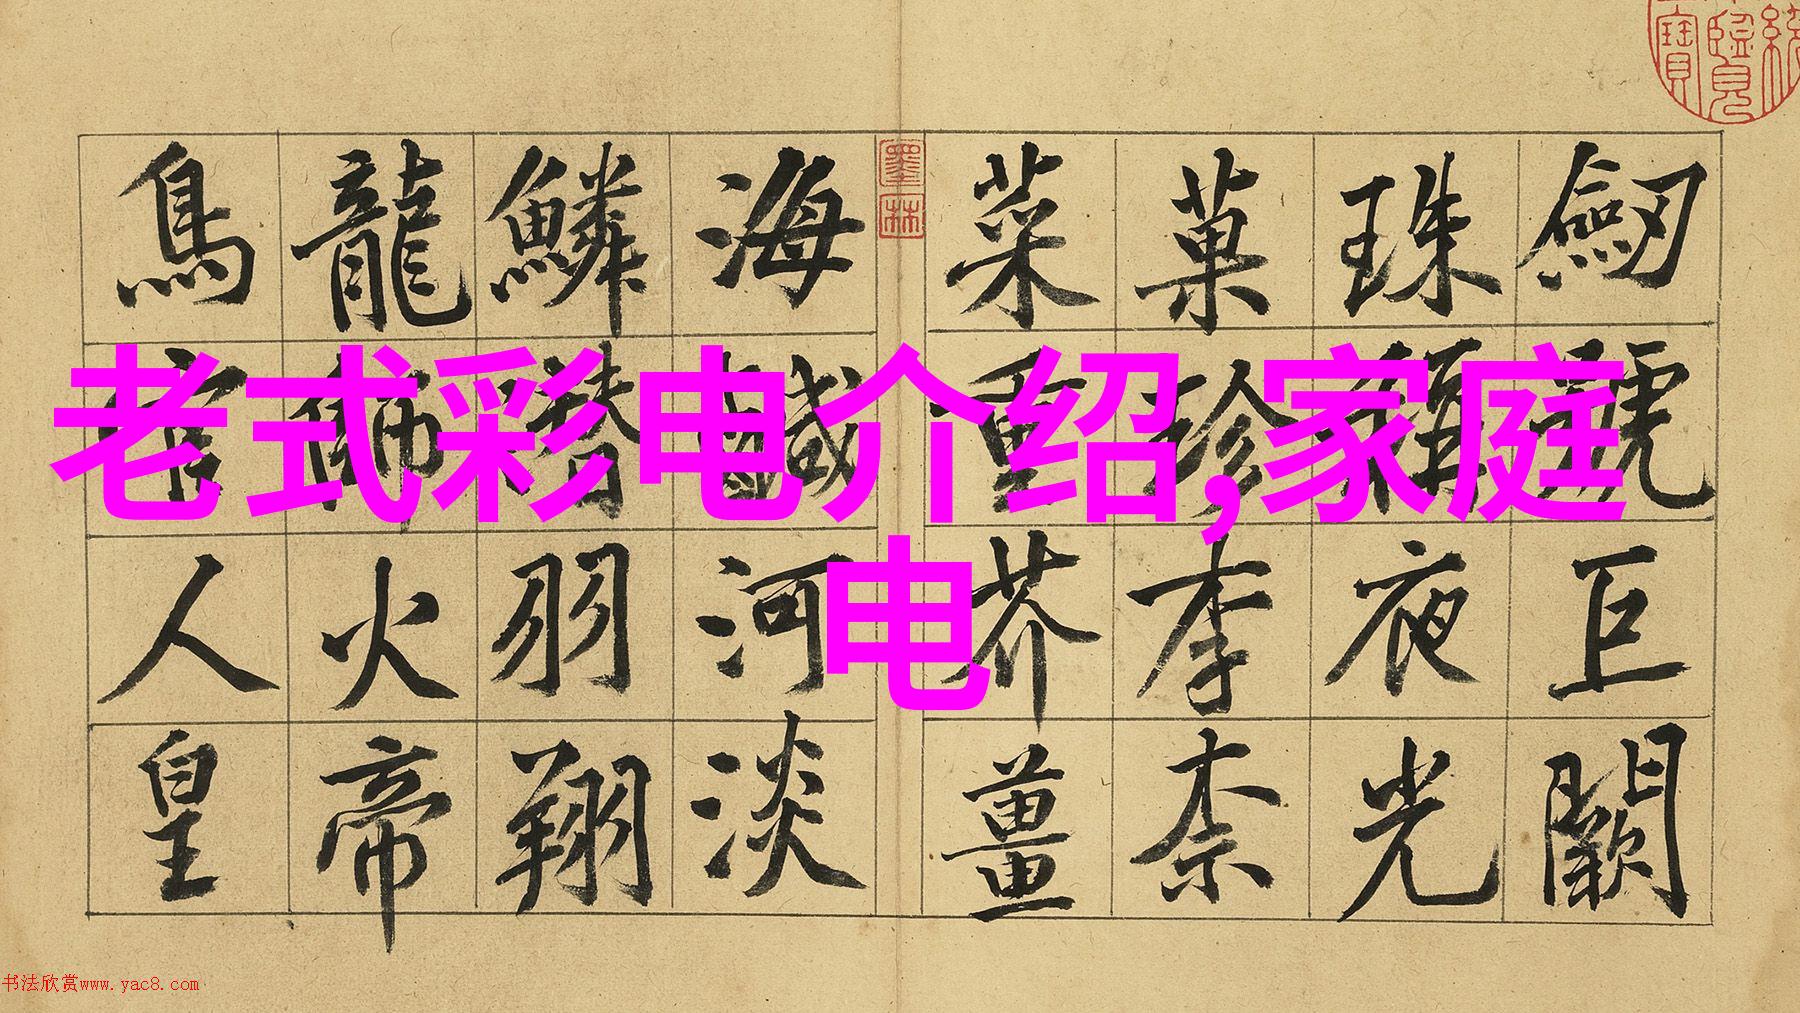 老式彩电介绍,家庭
电
劒號巨闕
珠稱夜光
菓珍李柰
菜重芥薑
海鹹河淡
鱗潛羽翔
龍師火帝
鳥官人皇
墨林
书法欣赏www.yac8.com